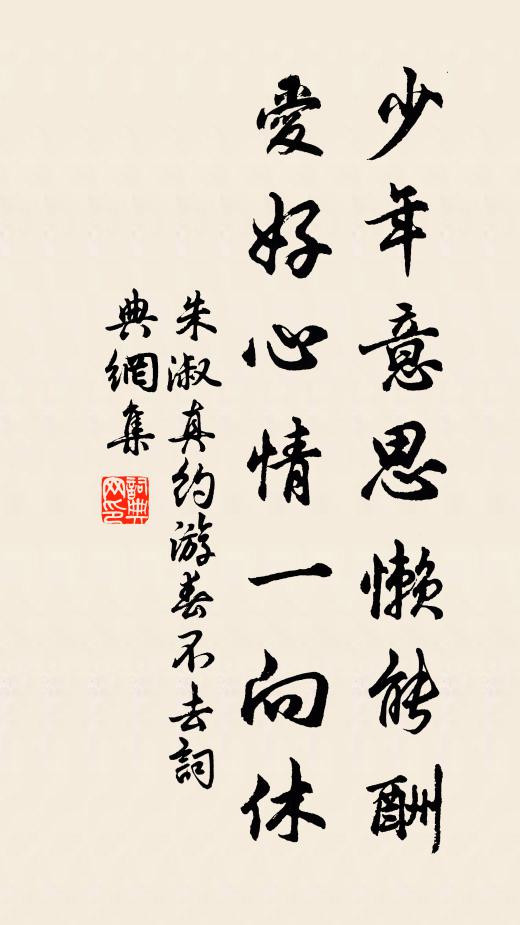 少年意思懒能酬
愛好心情一向休
朱淑真约游春不去詞
典網集
詞典网印